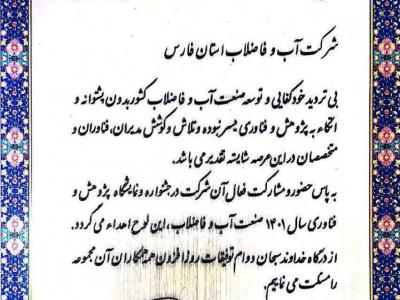 شرکت آب و فاضلاب استان فارس
بی تردید خودکفایی و توسعه صنعت آب و فاضلاب کشور بدون پشتوانه و
اتکاء به پژوهش و فناوری میسر نبوده و تلاش و کوشش مدیران، فناوران و
متخصصان در این عرصه شایسته تقدیر می باشد.
به پاس حضور و مشارکت فعال آن شرکت در جشنواره و نمایشگاه پژوهش و
فناوری سال ۱۴۰۱ صنعت آب و فاضلاب، این لوح اهداء می گردد.
از درگاه خداوند سبحان دوام توفیقات روزافزون همه همکاران آن مجموعه
را مسئلت می نماییم.